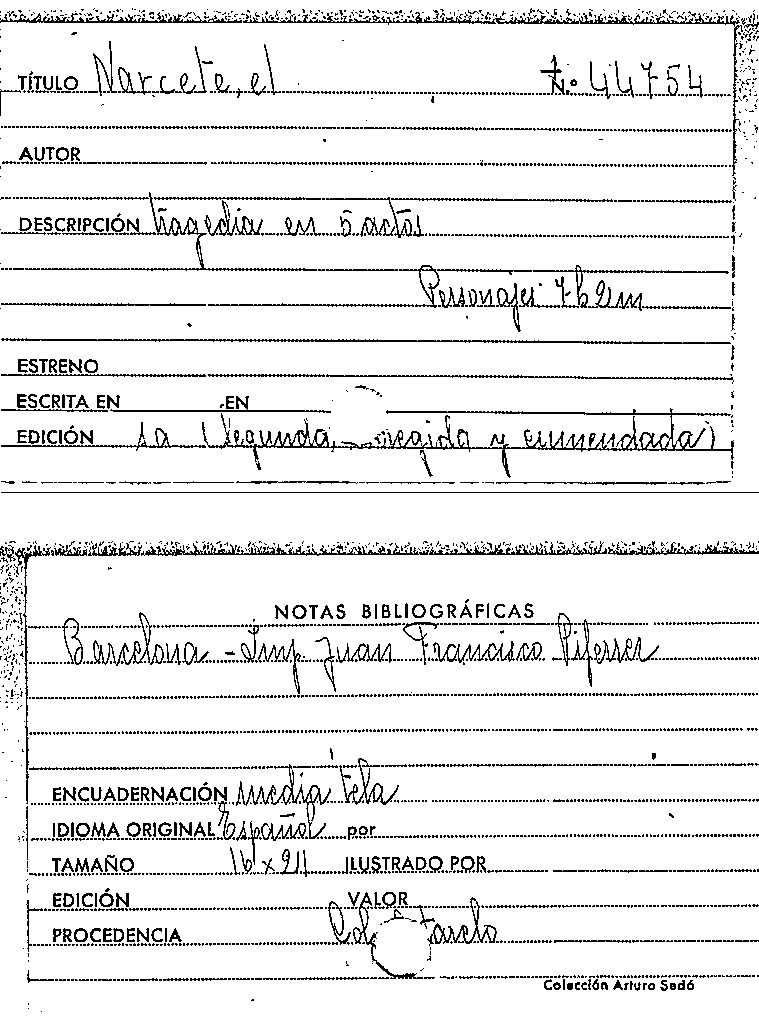 TÍTULO Narcete, el N.º 44754
AUTOR
DESCRIPCIÓN tragedia en 5 actos
Personajes 7h 2m
ESTRENO
ESCRITA EN EN
EDICIÓN 1a (Segunda, y enmendada)
NOTAS BIBLIOGRÁFICAS
Barcelona - Imp Juan Francisco Piferrer
ENCUADERNACIÓN media tela
IDIOMA ORIGINAL Español por
TAMAÑO ILUSTRADO POR
EDICIÓN VALOR
PROCEDENCIA
Colección Arturo Sedó